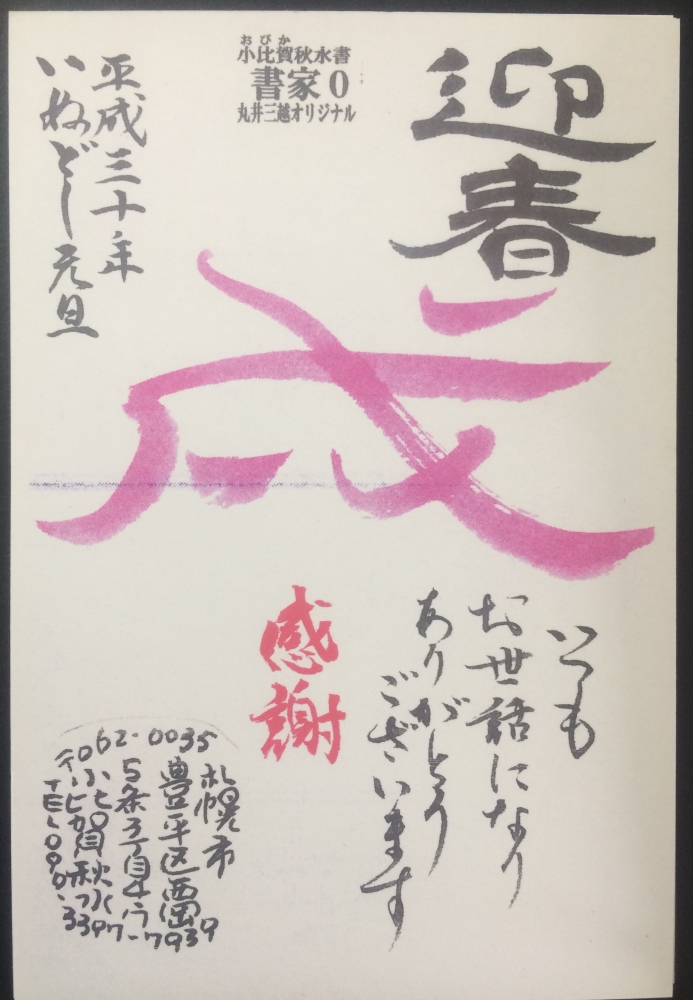 迎春
おびか
小比賀秋水書
書家0
丸井三越オリジナル
平成三十年
いぬどし元旦
戌
いつも
お世話になり
ありがとう
ございます
感謝
〒062-0035
札幌市
豊平区西岡
5条3丁目4-7-7
小比賀秋水